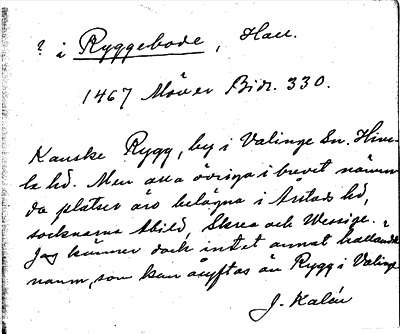 ? i Ryggebode, Hall.
1467 Möller Bidr. 330.
Kanske Rygg, by i Valinge Sn. Himle
hd. Men alla övriga i brevet nämn
da platser äro belägna i Årstads hd,
socknarna Abild, Skrea och Wessige.
Jag känner dock intet annat halländskt
namn, som kan åsyftas än Rygg i Valinge
J. Kalén